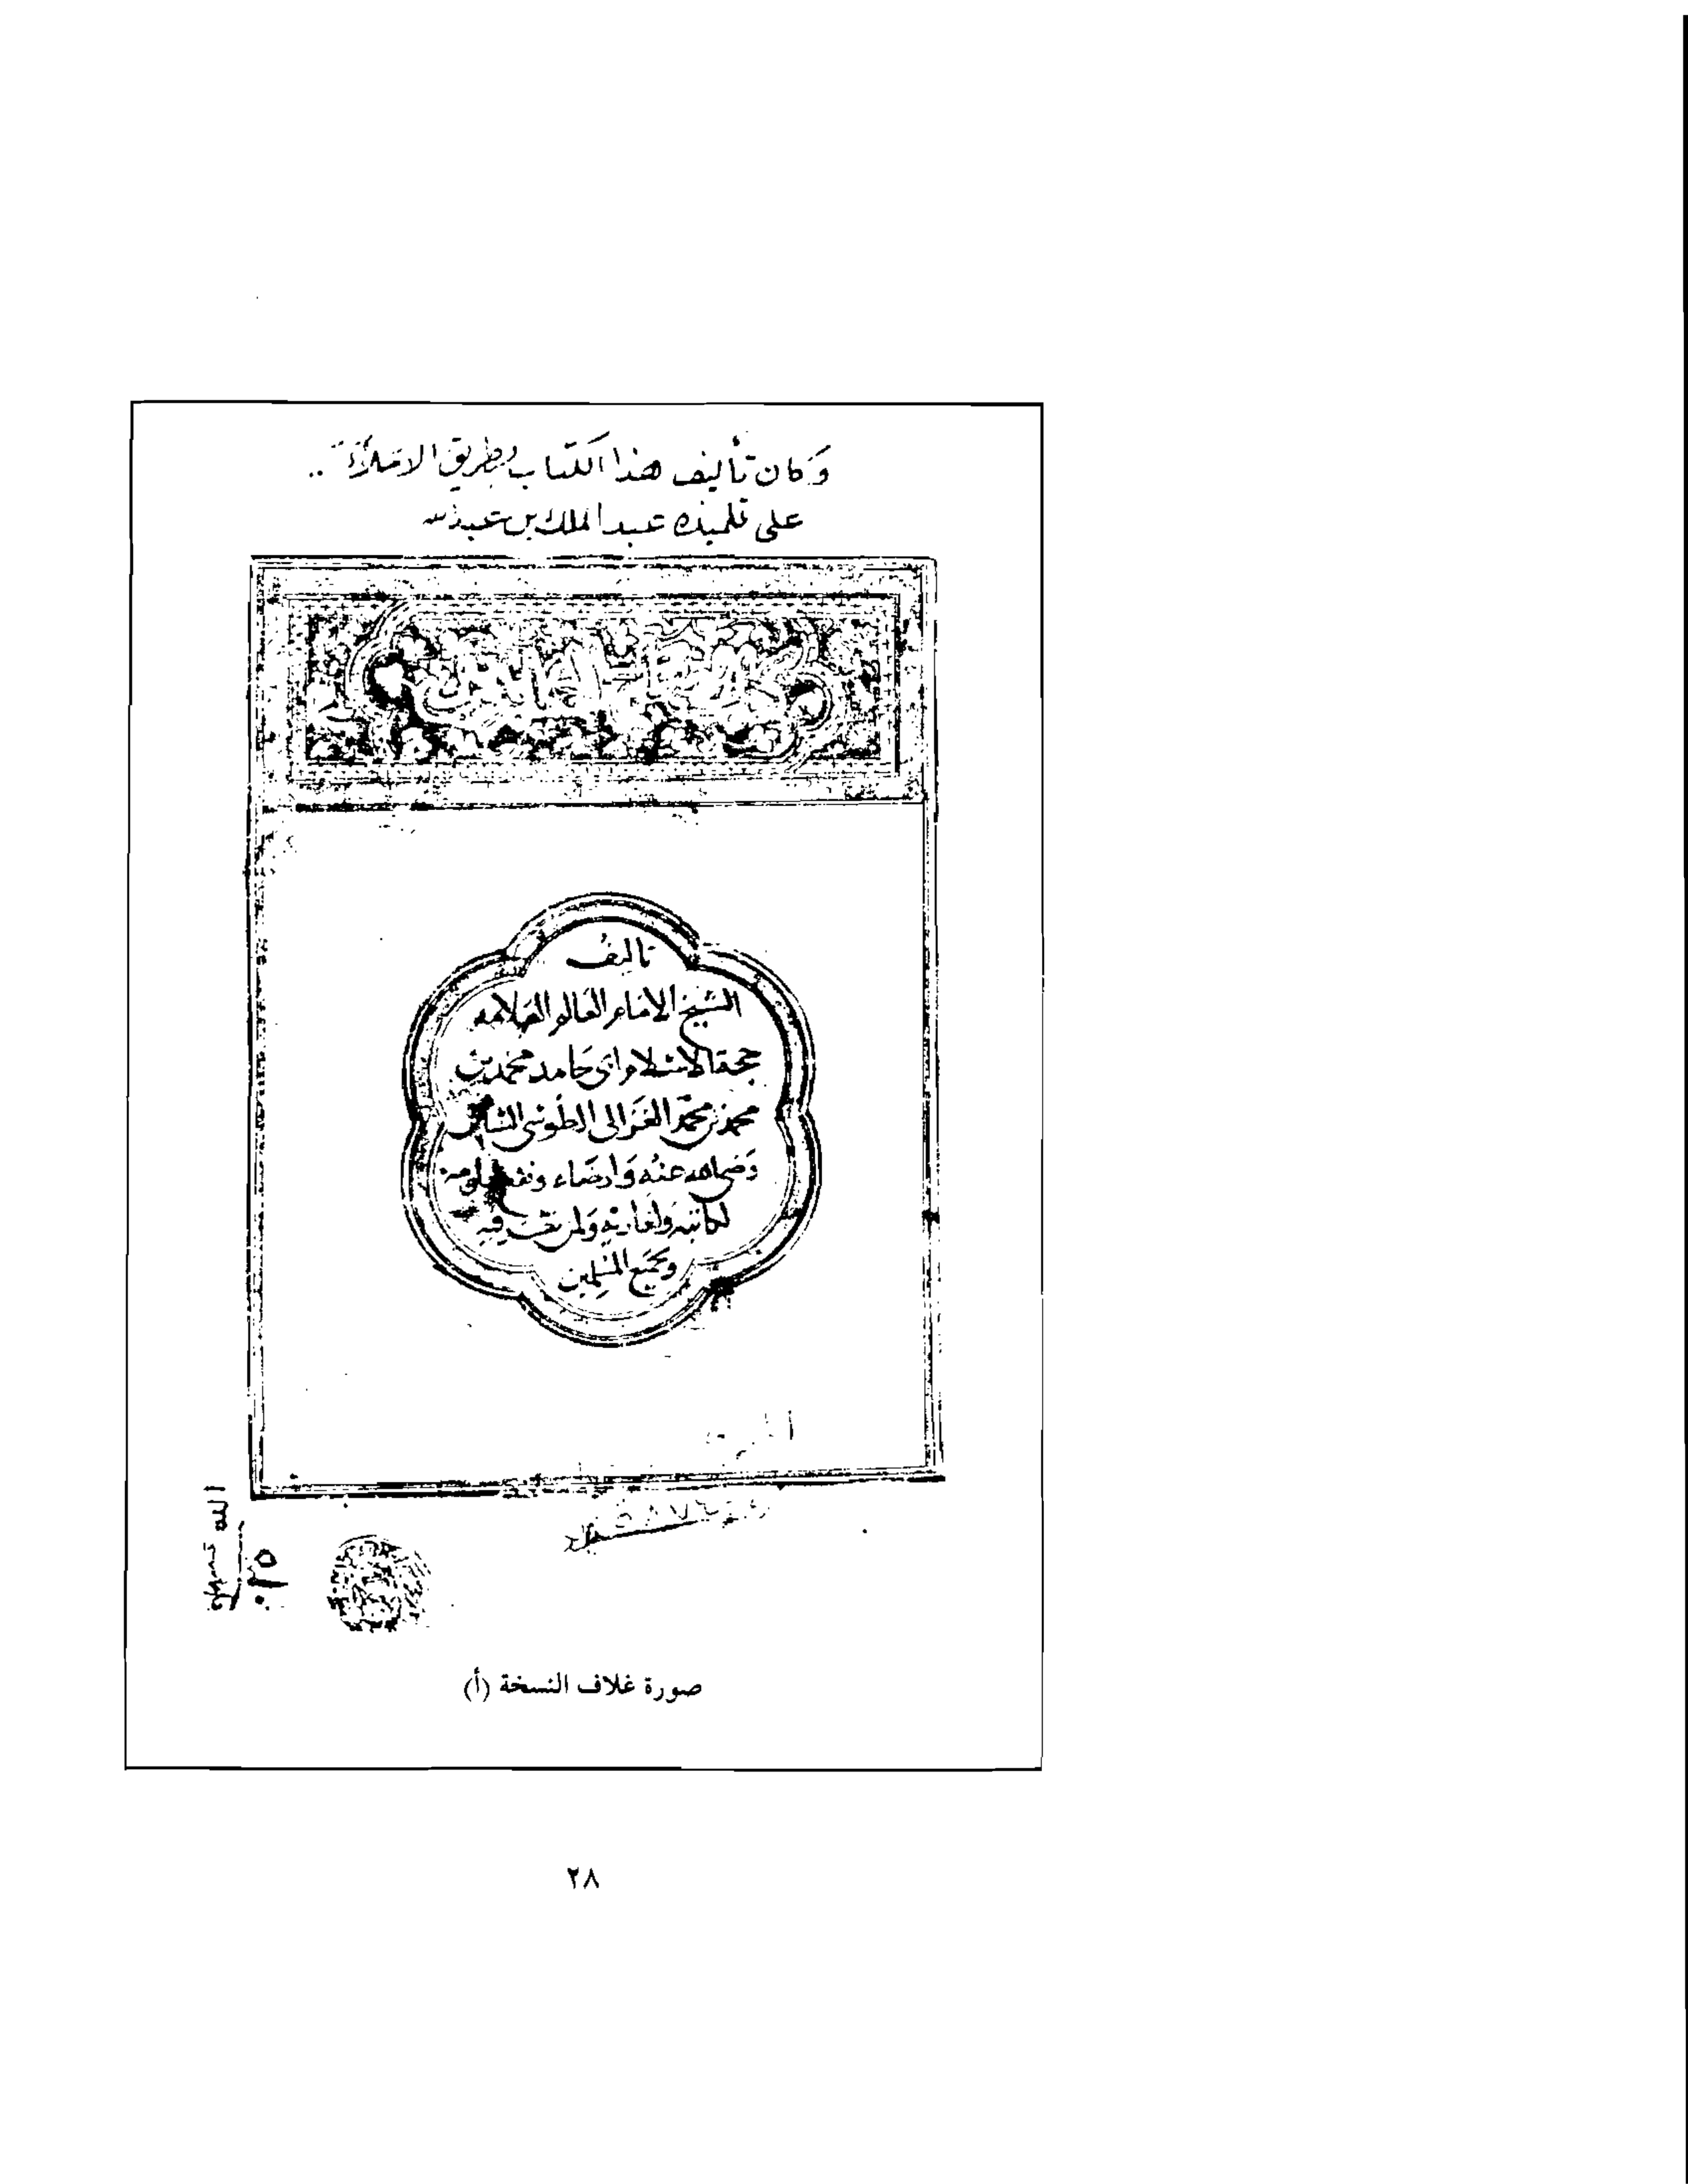 وكان تأليف هذا الكتاب بطريق الاملاء
على تلميذه عبد الملك بن عبد الله
تأليف
الشيخ الامام العالم العلامه
حجة الاسلام ابى حامد محمد بن
محمد بن محمد الغزالى الطوسى الشافعى
رضى الله عنه وارضاه ونفع بعلومه
لكاتبه ولقاريه ولمن نظر فيه
ولجميع المسلمين
صورة غلاف النسخة (أ)
٢٨